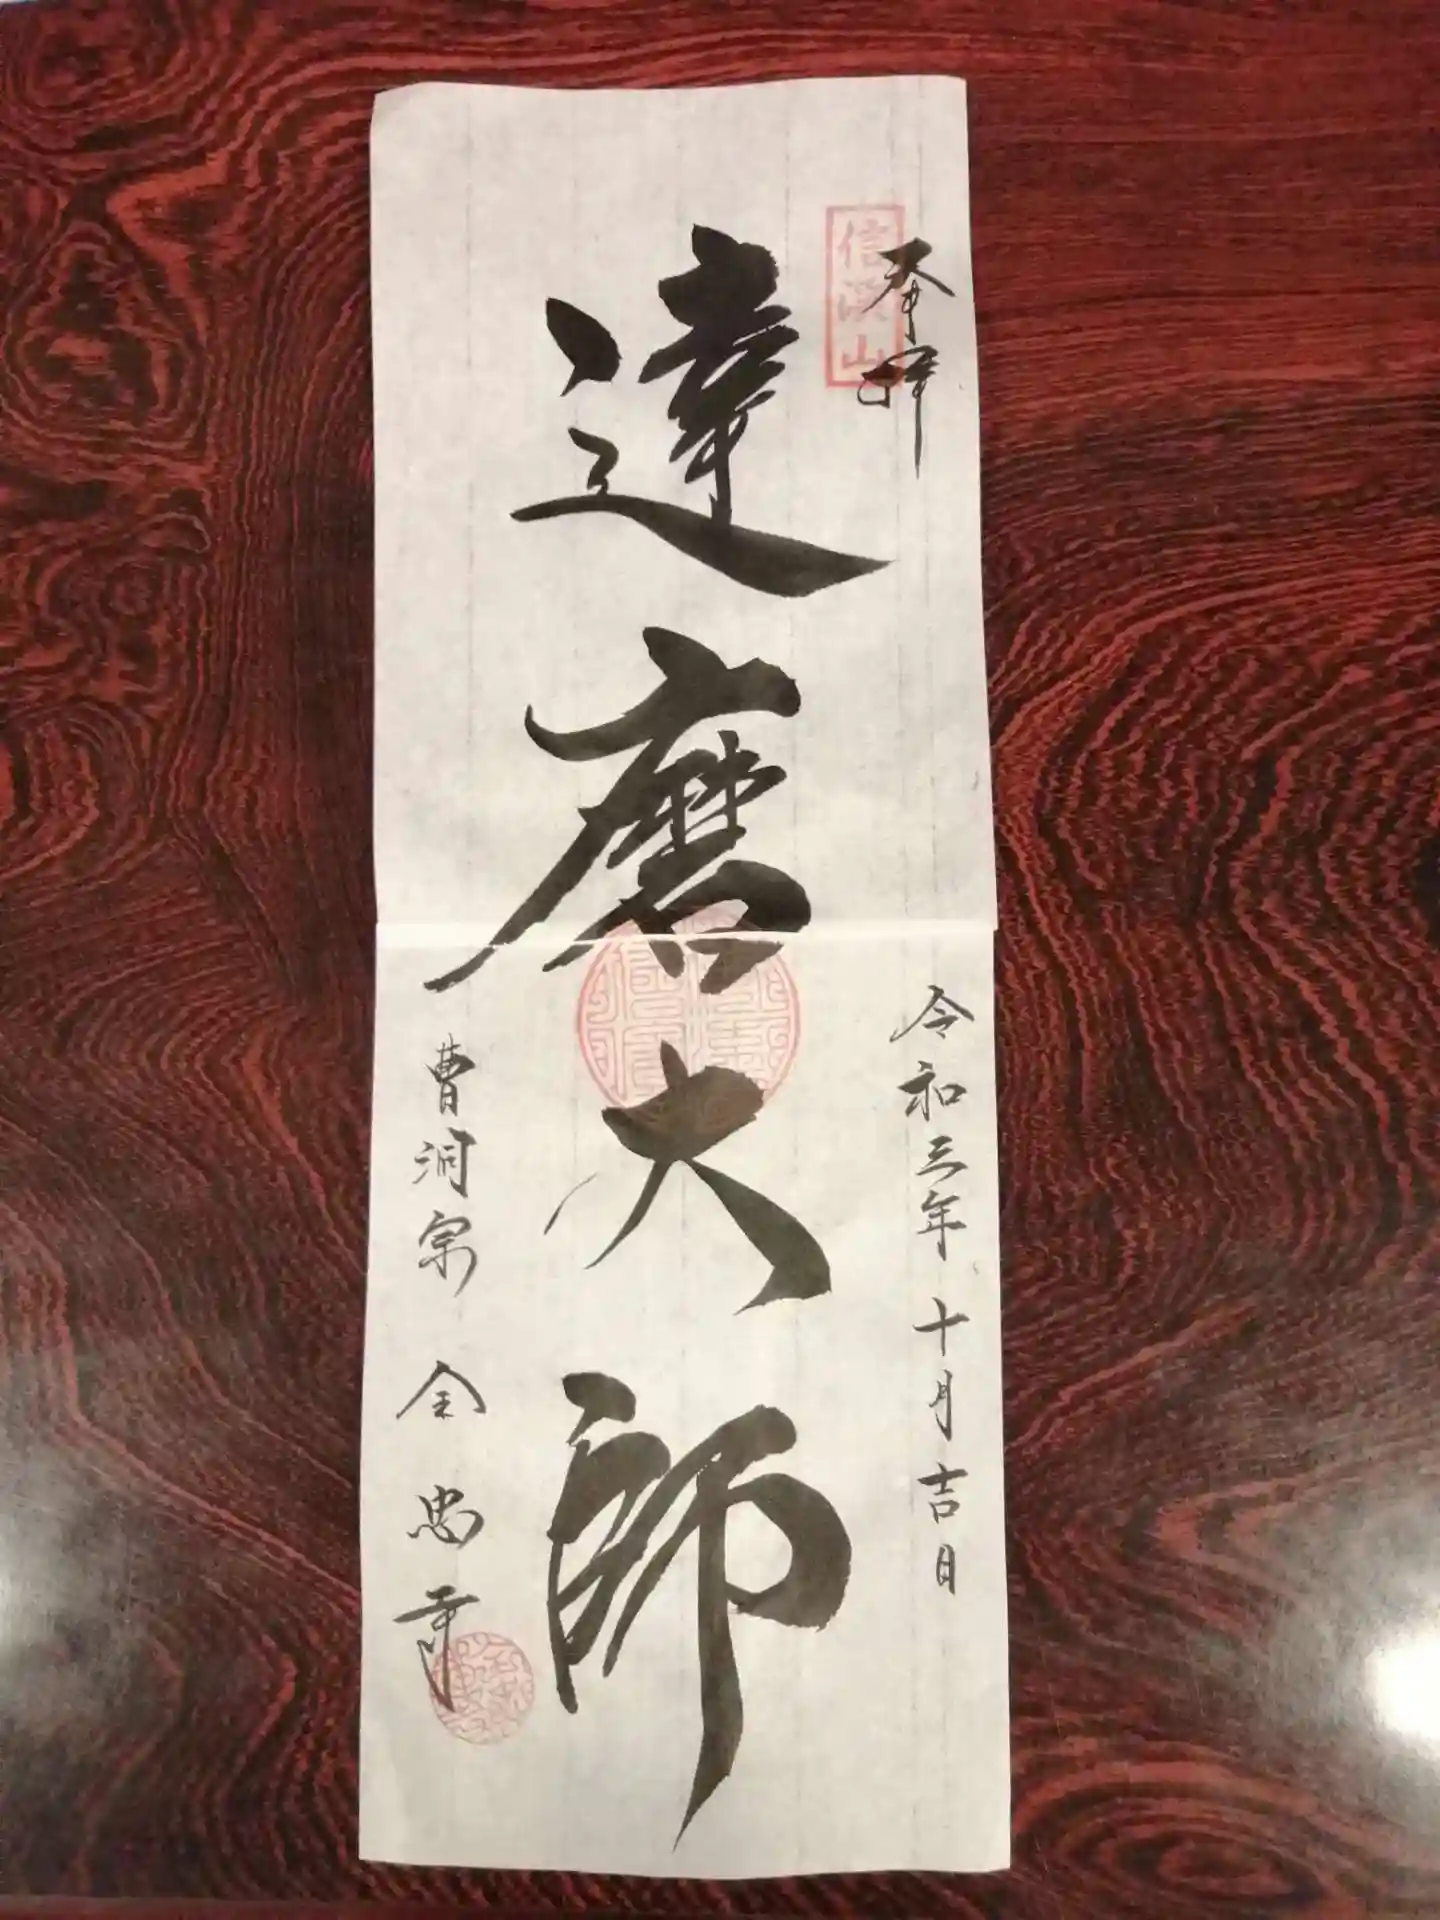 奉拝
信濃山
達磨大師
令和三年十月吉日
曹洞宗 全忠寺